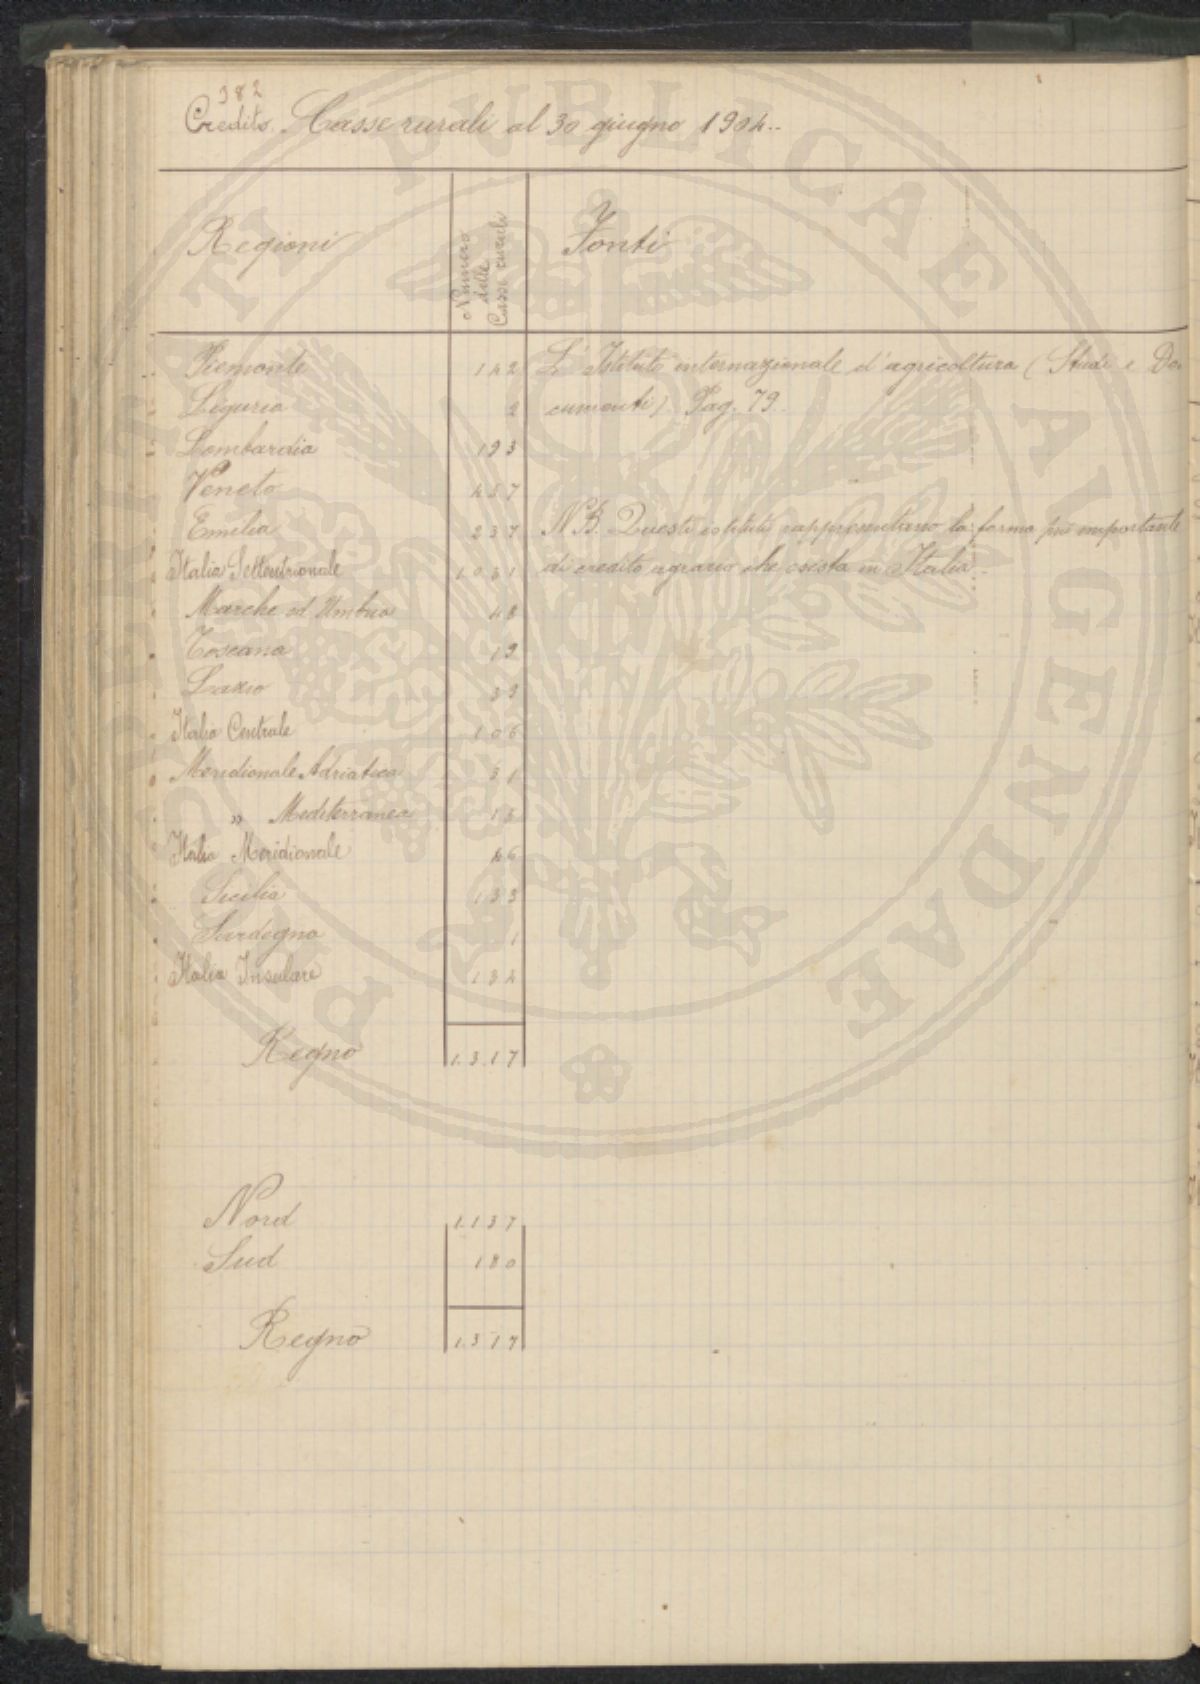 382
Credito. Casse rurali al 30 giugno 1904..
Regioni
Numero
delle
Casse rurali
Fonti
Piemonte 142 L'Istituto internazionale d'agricoltura (Studi e Do
Liguria 2 cumenti). Pag. 79.
Lombardia 193
Veneto 457
Emilia 237 N.B. Questi istituti rappresentano la forma più importante
Italia Settentrionale 1.031 di credito agrario che esista in Italia.
Marche ed Umbria 48
Toscana 19
Lazio 39
Italia Centrale 106
Meridionale Adriatica 31
" Mediterranea 15
Italia Meridionale 46
Sicilia 133
Sardegna 1
Italia Insulare 134
Regno 1.317
Nord 1.137
Sud 180
Regno 1.317
PUBLICAE AUGENDAE